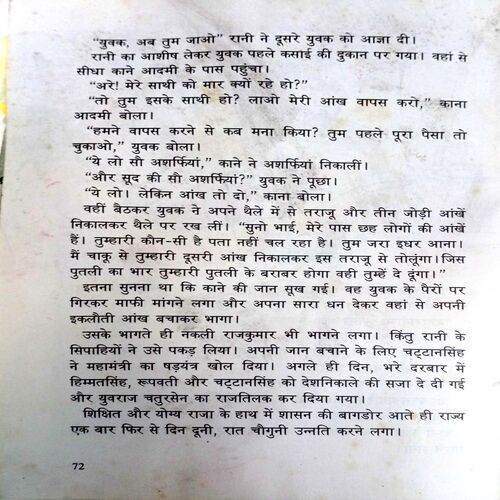 “युवक, अब तुम जाओ” रानी ने दूसरे युवक को आज्ञा दी।
रानी का आशीष लेकर युवक पहले कसाई की दुकान पर गया। वहां से
सीधा काने आदमी के पास पहुंचा।
“अरे! मेरे साथी को मार क्यों रहे हो?”
“तो तुम इसके साथी हो? लाओ मेरी आंख वापस करो,” काना
आदमी बोला।
“हमने वापस करने से कब मना किया? तुम पहले पूरा पैसा तो
चुकाओ,” युवक बोला।
“ये लो सौ अशर्फियां,” काने ने अशर्फियां निकालीं।
“और सूद की सौ अशर्फियां?” युवक ने पूछा।
“ये लो। लेकिन आंख तो दो,” काना बोला।
वहीं बैठकर युवक ने अपने थैले में से तराजू और तीन जोड़ी आंखें
निकालकर थैले पर रख लीं। “सुनो भाई, मेरे पास छह लोगों की आंखें
हैं। तुम्हारी कौन-सी है पता नहीं चल रहा है। तुम जरा इधर आना।
मैं चाकू से तुम्हारी दूसरी आंख निकालकर इस तराजू से तोलूंगा। जिस
पुतली का भार तुम्हारी पुतली के बराबर होगा वही तुम्हें दे दूंगा।”
इतना सुनना था कि काने की जान सूख गई। वह युवक के पैरों पर
गिरकर माफी मांगने लगा और अपना सारा धन देकर वहां से अपनी
इकलौती आंख बचाकर भागा।
उसके भागते ही नकली राजकुमार भी भागने लगा। किंतु रानी के
सिपाहियों ने उसे पकड़ लिया। अपनी जान बचाने के लिए चट्टानसिंह
ने महामंत्री का षड़यंत्र खोल दिया। अगले ही दिन, भरे दरबार में
हिम्मतसिंह, रूपवती और चट्टानसिंह को देशनिकाले की सजा दे दी गई
और युवराज चतुरसेन का राजतिलक कर दिया गया।
शिक्षित और योग्य राजा के हाथ में शासन की बागडोर आते ही राज्य
एक बार फिर से दिन दूनी, रात चौगुनी उन्नति करने लगा।
72